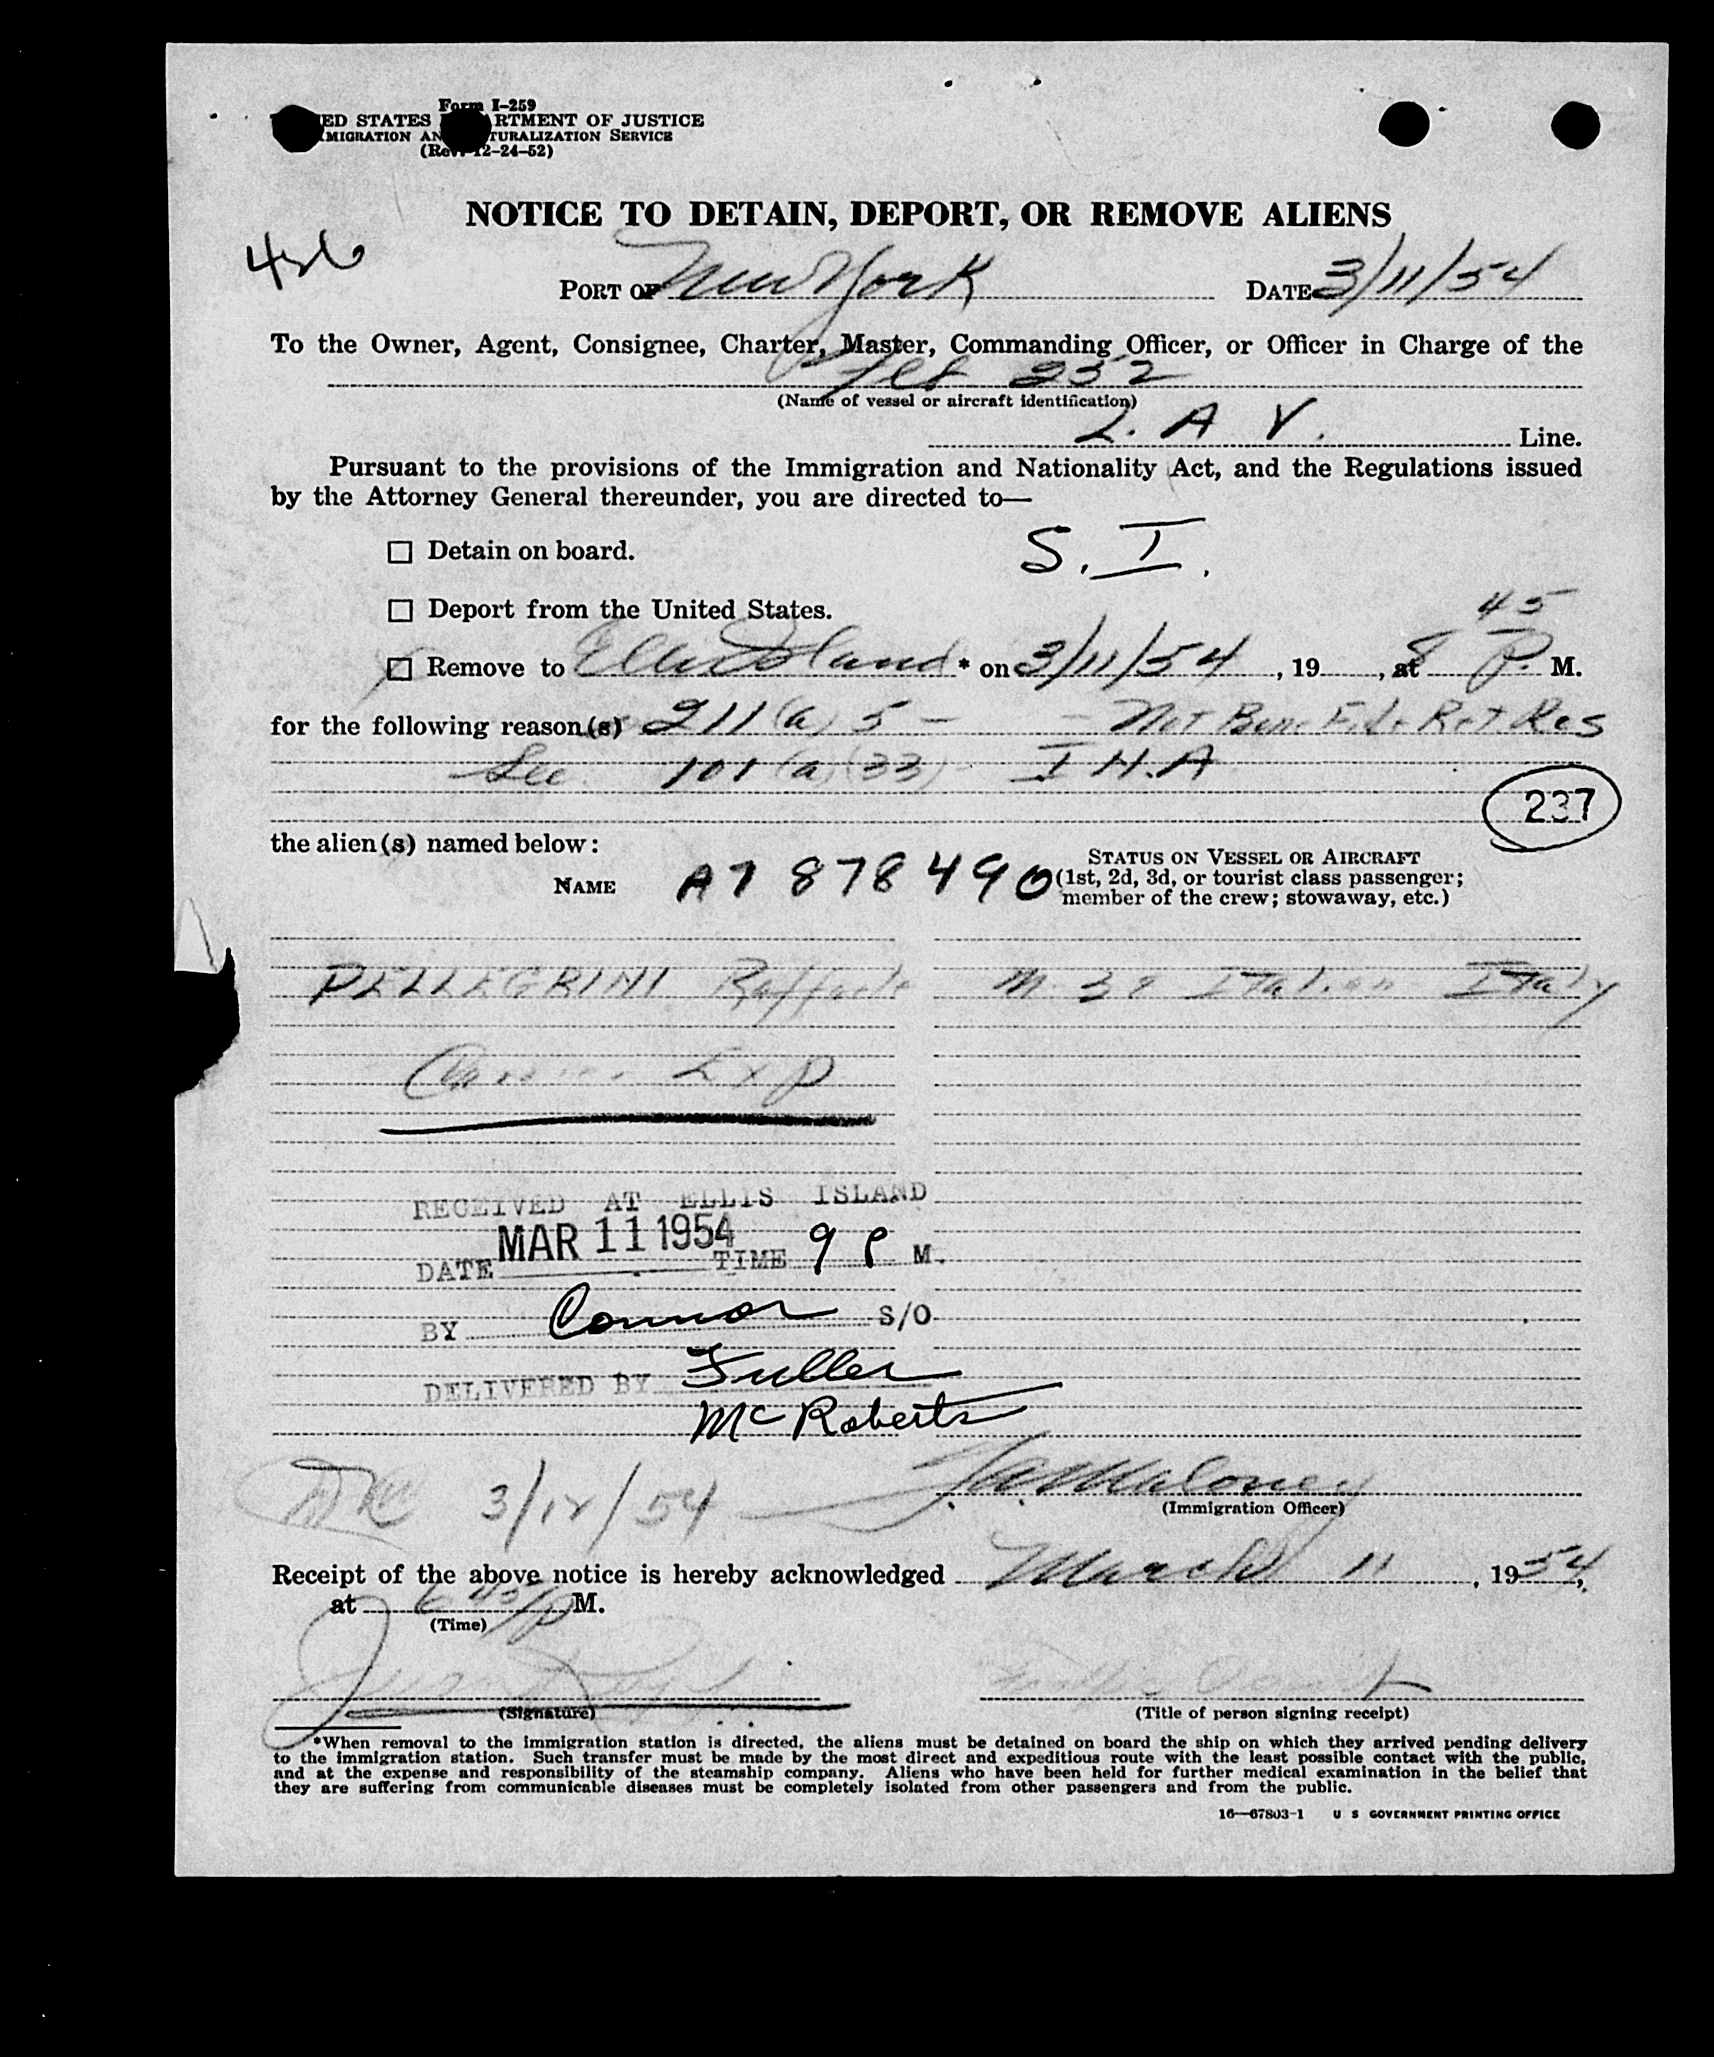 Form I-259
ED STATES RTMENT OF JUSTICE
MIGRATION AN TURALIZATION SERVICE
(Rev. 12-24-52)
NOTICE TO DETAIN, DEPORT, OR REMOVE ALIENS
PORT OF New York DATE 3/11/54
To the Owner, Agent, Consignee, Charter, Master, Commanding Officer, or Officer in Charge of the
Flt 252
(Name of vessel or aircraft identification)
L. A V. Line.
Pursuant to the provisions of the Immigration and Nationality Act, and the Regulations issued
by the Attorney General thereunder, you are directed to—
☐ Detain on board.
S. I.
☐ Deport from the United States.
45
☐ Remove to Ellis Island * on 3/11/54, 19 , at 8 P. M.
for the following reason(s) 211 (a) 5 - - Not Bona Fide Ret Res
Sec. 101 (a) (33) - I N.A
237
the alien(s) named below:
STATUS ON VESSEL OR AIRCRAFT
NAME A7 878 490 (1st, 2d, 3d, or tourist class passenger;
member of the crew; stowaway, etc.)
PELLEGRINI Raffaele M 38 Italian Italy
Exp
RECEIVED AT ELLIS ISLAND
DATE MAR 11 1954 TIME 9 P M.
BY Connor S/O
DELIVERED BY Fuller
McRoberts
3/12/54 Maloney
(Immigration Officer)
Receipt of the above notice is hereby acknowledged March 11, 1954,
at 6 45 P M.
(Time)
(Signature) (Title of person signing receipt)
*When removal to the immigration station is directed, the aliens must be detained on board the ship on which they arrived pending delivery
to the immigration station. Such transfer must be made by the most direct and expeditious route with the least possible contact with the public,
and at the expense and responsibility of the steamship company. Aliens who have been held for further medical examination in the belief that
they are suffering from communicable diseases must be completely isolated from other passengers and from the public.
16—67803-1 U S GOVERNMENT PRINTING OFFICE